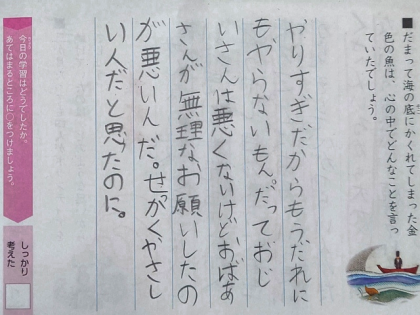 ■だまって海の底にかくれてしまった金
色の魚は、心の中でどんなことを言っ
ていたでしょう。
やりすぎだからもうだれに
もやらないもん。だっておじ
いさんは悪くないけどおばあ
さんが無理なお願いしたの
が悪いんだ。せがくやさし
い人だと思たのに。
今日の学習はどうでしたか。
あてはまるところに○をつけましょう。
しっかり
考えた